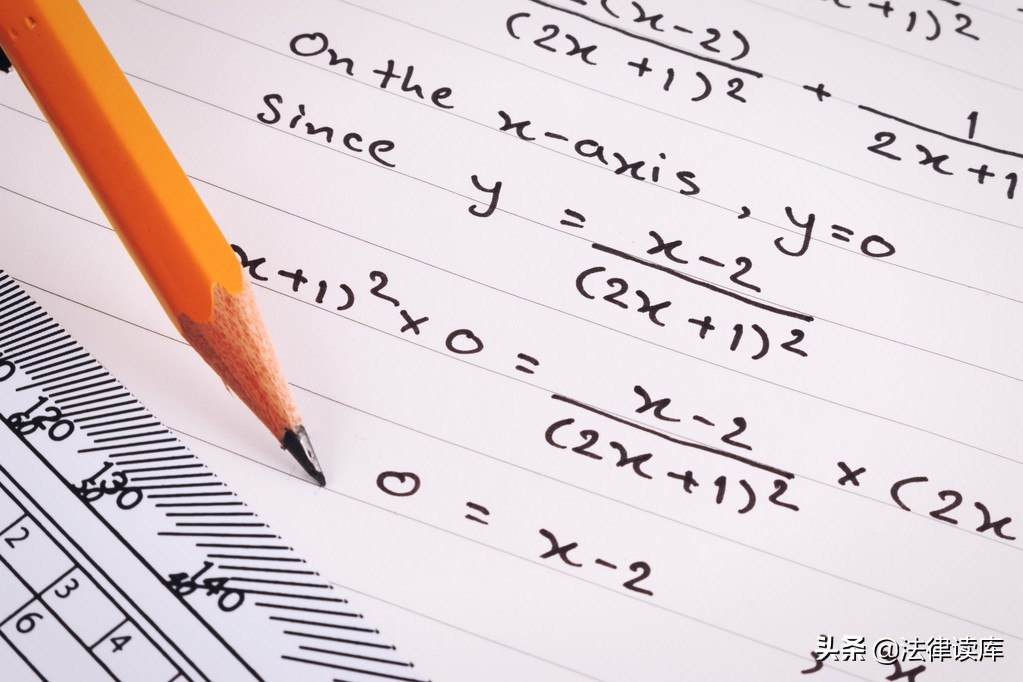 (x-2)
(2x+1)² + 1
2x+1
+1)²
On the x-axis, y=0
Since y = x-2
(2x+1)²
x+1)² × 0 = x-2
(2x+1)² × (2x
0 = x-2
x
120
60
130
50
140
40
2
3
4
6
头条 @法律读库